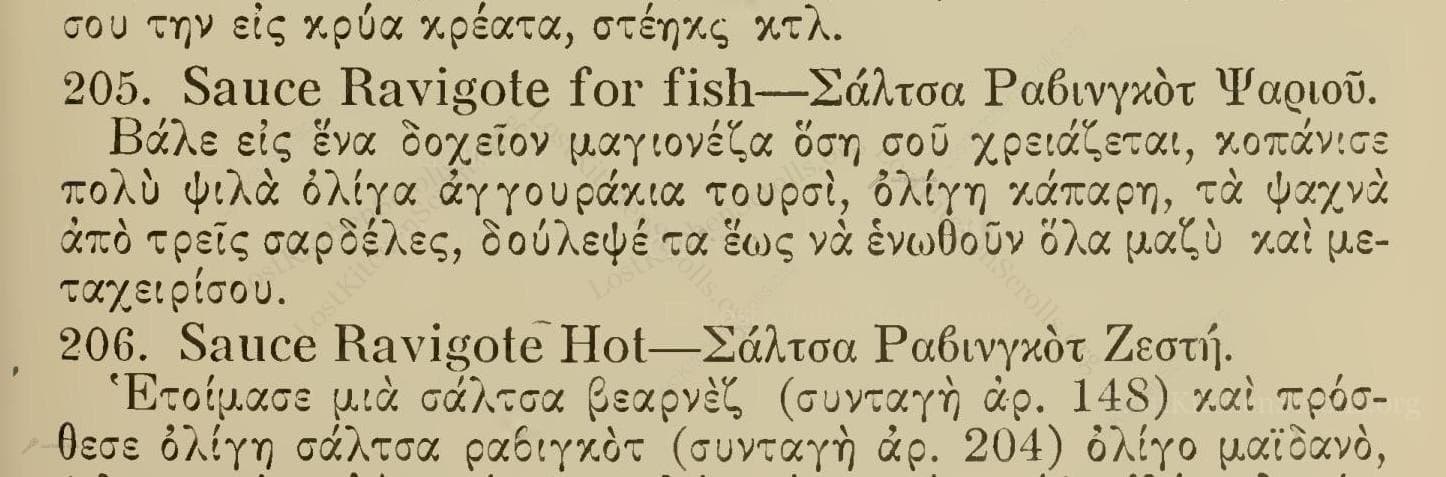 σου την εἰς κρύα κρέατα, στέηκς κτλ.
205. Sauce Ravigote for fish—Σάλτσα Ραβινγκὸτ Ψαριοῦ.
Βάλε εἰς ἕνα δοχεῖον μαγιονέζα ὅση σοῦ χρειάζεται, κοπάνισε
πολὺ ψιλὰ ὀλίγα ἀγγουράκια τουρσὶ, ὀλίγη κάπαρη, τὰ ψαχνὰ
ἀπὸ τρεῖς σαρδέλες, δούλεψέ τα ἕως νὰ ἑνωθοῦν ὅλα μαζὺ καὶ με-
ταχειρίσου.
206. Sauce Ravigote Hot—Σάλτσα Ραβινγκὸτ Ζεστή.
Ἑτοίμασε μιὰ σάλτσα βεαρνὲζ (συνταγὴ ἀρ. 148) καὶ πρόσ-
θεσε ὀλίγη σάλτσα ραβιγκὸτ (συνταγὴ ἀρ. 204) ὀλίγο μαϊδανὸ,